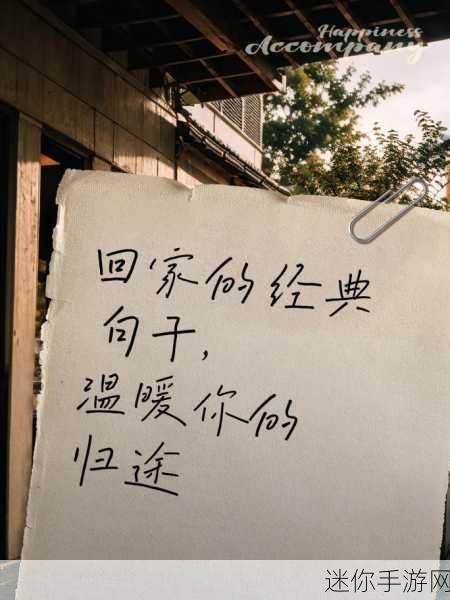 Happiness
Accompany
回家的经典
句子,
温暖你的
归途
迷你手游网